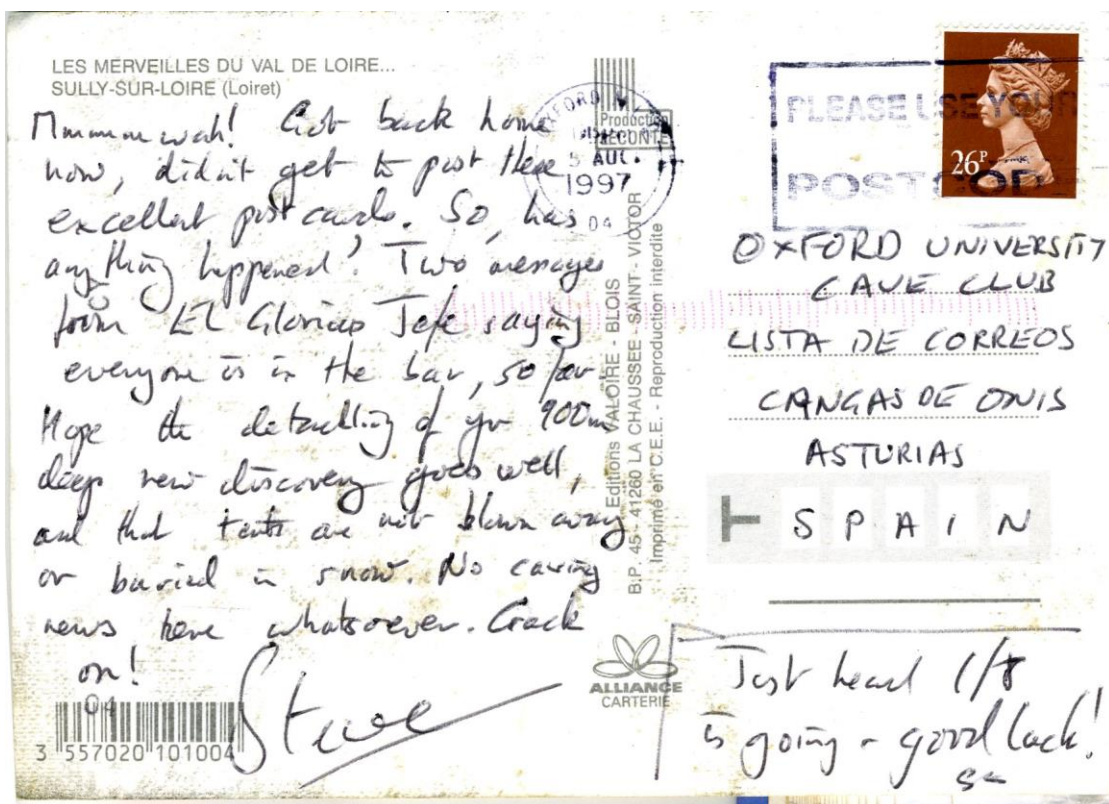 LES MERVEILLES DU VAL DE LOIRE...
SULLY-SUR-LOIRE (Loiret)
Mmmmmwah! Got back home
now, didn't get to post these
excellent postcards. So, has
anything happened? Two messages
from El Glorioso Jefe saying
everyone is in the bar, so far
Hope the detackling of yr 900m
deep new discovery goes well,
and that tents are not blown away
or buried in snow. No caving
news here whatsoever. Crack
on!
Steve
04
3 557020 101004
OXFORD
Production
LECONTE
5 AUG.
1997
04
Editions VALOIRE - BLOIS
B.P. 45 - 41260 LA CHAUSSEE - SAINT - VICTOR
Imprimé en C.E.E. - Reproduction interdite
ALLIANCE
CARTERIE
PLEASE USE YOUR
POSTCODE
26P
OXFORD UNIVERSITY
CAVE CLUB
LISTA DE CORREOS
CANGAS DE ONIS
ASTURIAS
SPAIN
Just heard 1/8
is going - good luck!